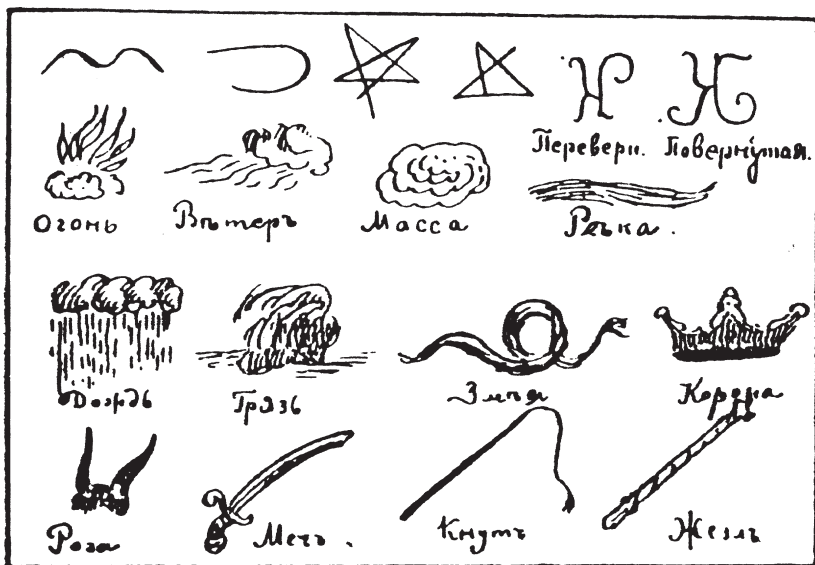 Переверн. Повернутая.
Огонь Вѣтеръ Масса Рѣка.
Дождь Грязь Змѣя Корона
Рога Мечъ. Кнутъ Жезлъ